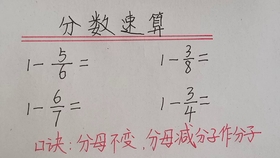 分数速算
1-5/6= 1-3/8=
1-6/7= 1-3/4=
口诀:分母不变,分母减分子作分子